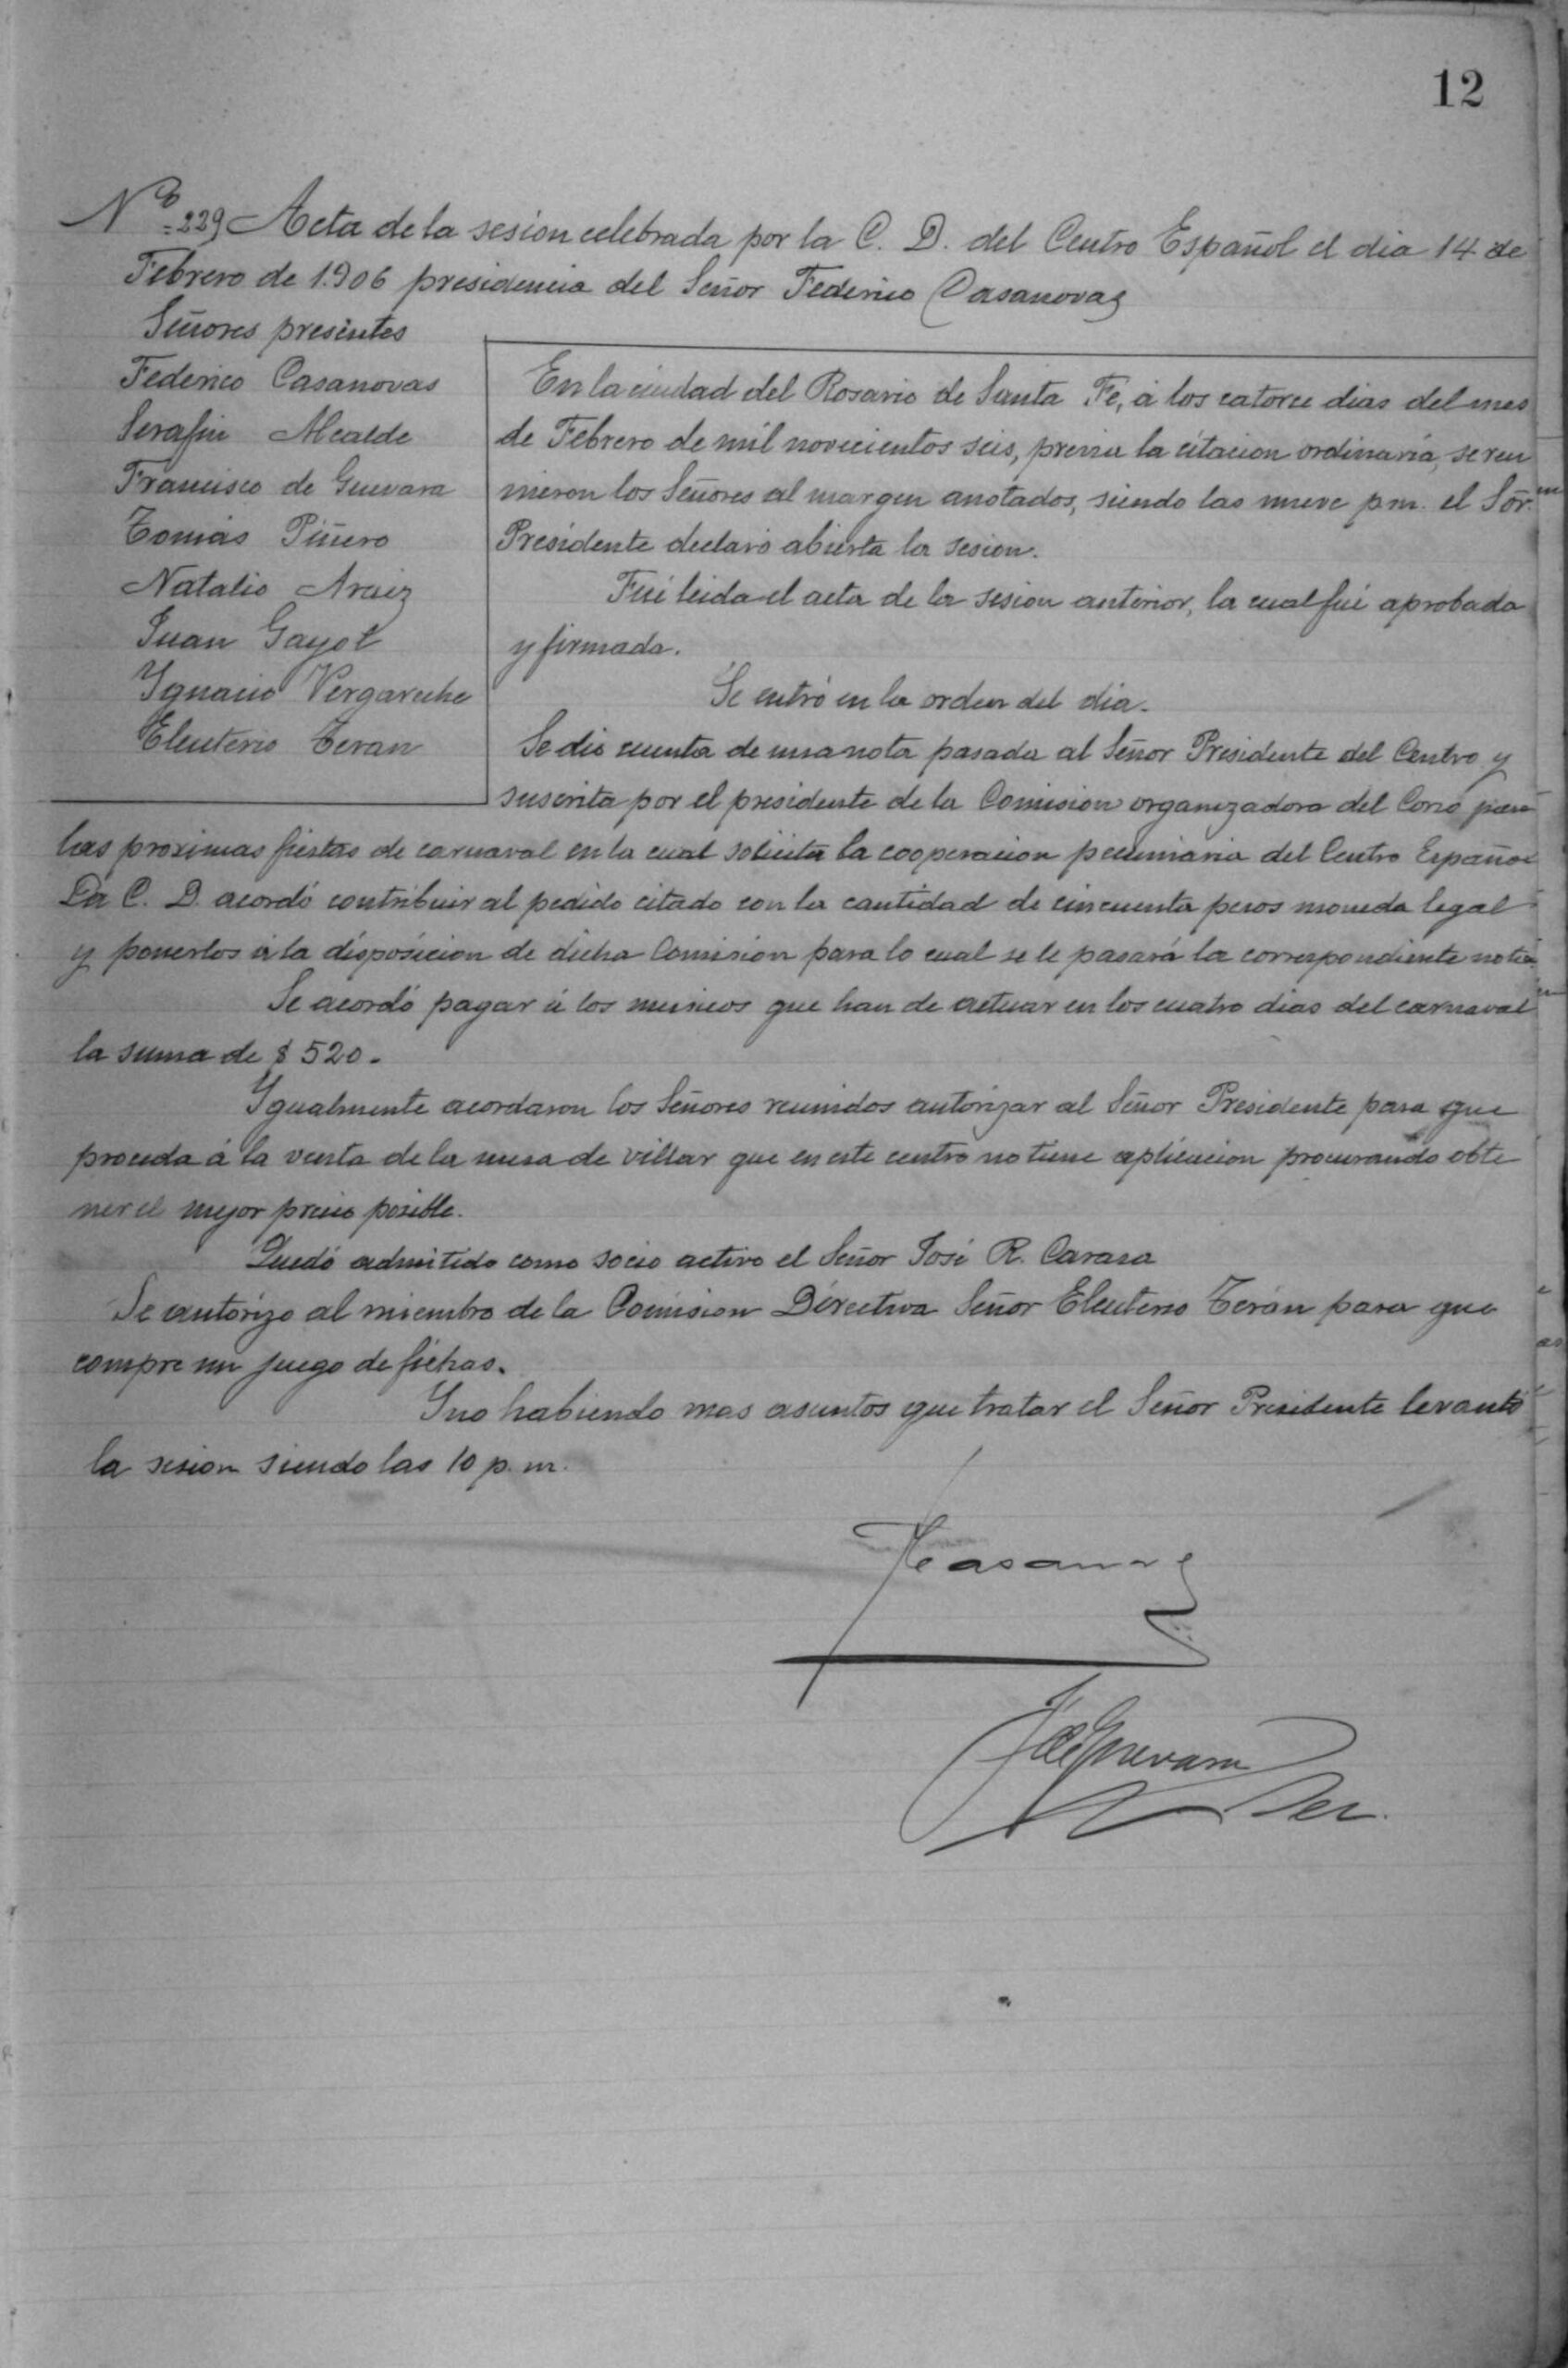 12
Nº 229 Acta de la sesion celebrada por la C. D. del Centro Español el dia 14 de
Febrero de 1.906 presidencia del Señor Federico Casanovas
Señores presentes
Federico Casanovas
Serafin Alcalde
Francisco de Guevara
Tomás Piñero
Natalio Araiz
Juan Gayol
Ygnacio Vergareche
Eleuterio Teran
En la ciudad del Rosario de Santa Fe, á los catorce dias del mes
de Febrero de mil novecientos seis, previa la citacion ordinaria, se reu
nieron los Señores al margen anotados, siendo las nueve p.m. el Sõr.
Presidente declaró abierta la sesion.
Fué leida el acta de la sesion anterior, la cual fué aprobada
y firmada.
Se entró en la orden del dia.
Se dió cuenta de una nota pasada al Señor Presidente del Centro y
suscrita por el presidente de la Comision organizadora del Corso para
las proximas fiestas de carnaval en la cual solicita la cooperacion pecuniaria del Centro Español
La C. D. acordó contribuir al pedido citado con la cantidad de cincuenta pesos moneda legal
y ponerlos á la disposicion de dicha Comision para lo cual se le pasará la correspondiente nota
Se acordó pagar á los musicos que han de actuar en los cuatro dias del carnaval
la suma de $ 520.
Ygualmente acordaron los Señores reunidos autorizar al Señor Presidente para que
proceda á la venta de la mesa de villar que en este centro no tiene aplicacion procurando obte
ner el mejor precio posible.
Quedó admitido como socio activo el Señor José R. Carasa
Se autorizo al miembro de la Comision Directiva Señor Eleuterio Terán para que
compre un juego de fichas.
Y no habiendo mas asuntos que tratar el Señor Presidente levantó
la sesion siendo las 10 p. m.
FCasanovas
F de Guevara
Sec.